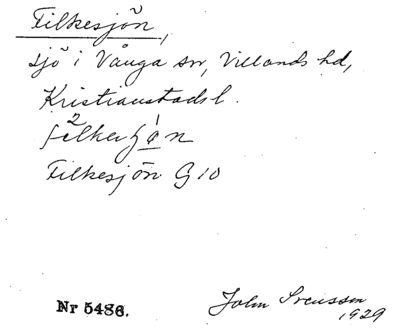 Filkesjön,
sjö i Vånga sn, Villands hd,
Kristianstads l.
Filkesjön G 10
Nr 5486.
John Svensson
1929